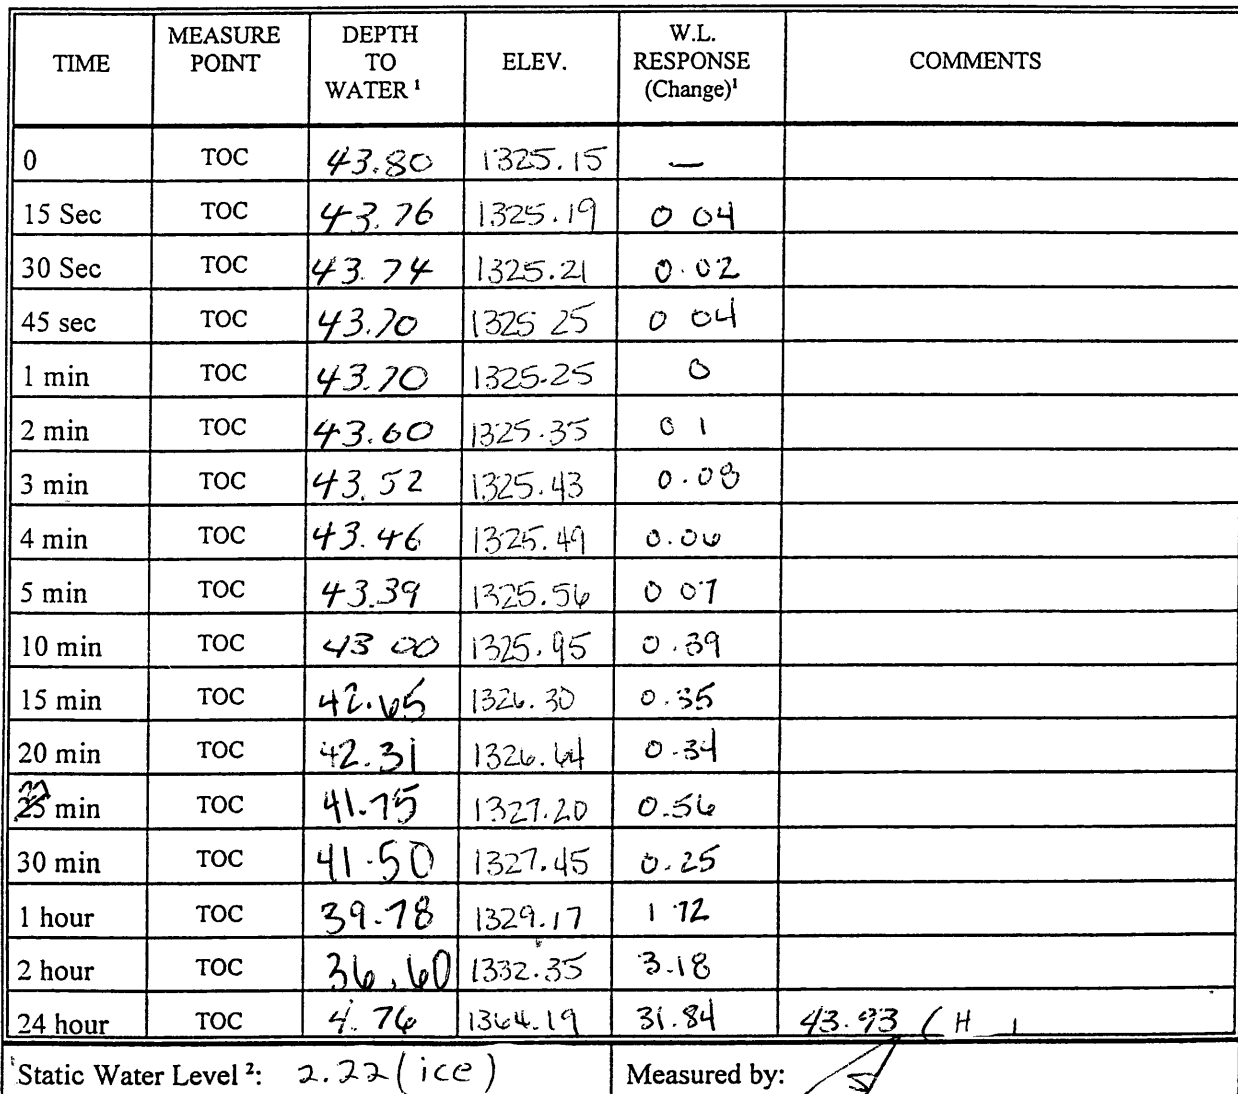 TIME MEASURE POINT DEPTH TO WATER ¹ ELEV. W.L. RESPONSE (Change)¹ COMMENTS
0 TOC 43.80 1325.15 —
15 Sec TOC 43.76 1325.19 0 04
30 Sec TOC 43.74 1325.21 0.02
45 sec TOC 43.70 1325 25 0 04
1 min TOC 43.70 1325.25 0
2 min TOC 43.60 1325.35 0 1
3 min TOC 43.52 1325.43 0.08
4 min TOC 43.46 1325.49 0.06
5 min TOC 43.39 1325.56 0 07
10 min TOC 43 00 1325.95 0.39
15 min TOC 42.65 1326.30 0.35
20 min TOC 42.31 1326.64 0.34
min TOC 41.75 1327.20 0.56
30 min TOC 41.50 1327.45 0.25
1 hour TOC 39.78 1329.17 1 72
2 hour TOC 36.60 1332.35 3.18
24 hour TOC 4.76 1364.19 31.84 43.93 ( H
Static Water Level ²: 2.22 (ice) Measured by: